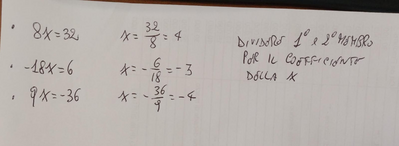 • 8x=32 x=32/8=4
• -18x=6 x=-6/18=-3
• 9x=-36 x=-36/9=-4
DIVIDERE 1° e 2° MEMBRO
PER IL COEFFICIENTE
DELLA X